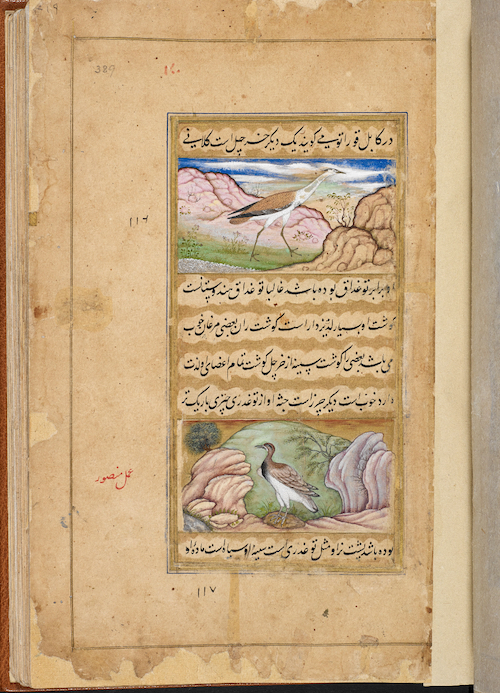 389
۱۶۰
در کابل قوراتومے کویند یک دیکر خرچل است کلانے
۱۱۶
برابر توغداق بوده باشد غالبا توغداق هندوستانست
کوشت او بسیار لذیذ دار است کوشت ران بعضی مرغان خوب
می باشد بعضی را کوشت سینه از خرچل کوشت تمام اعضای او لذت
دارد خوب است دیکر چرز است جثهٔ او از توغدری چیزی باریک تر
عمل منصور
بوده باشد پشت نر او مثل توغدری است سینهٔ او سیاه است ماده او
۱۱۷